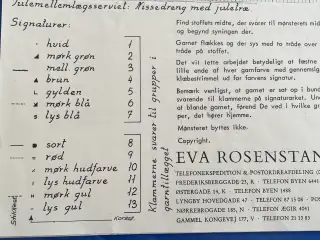 Julemellemlægsserviet: Nissedreng med juletræ.
Signaturer:
hvid 1
mørk grøn 2
mell grøn 3
brun 4
gylden 5
mørk blå 6
lys blå 7
sort 8
rød 9
mørk hudfarve 10
lys hudfarve 11
mørk gul 12
lys gul 13
Korsst.
Klammerne svarer til grupper i
garntillægget
Find stoffets midte, der svarer til mønsterets midt
og begynd syningen der.
Garnet flækkes og der sys med to tråde over
tråde på stoffet.
Det vil lette arbejdet betydeligt at fæstne
lille ende af hver garnfarve med gennemsig
klæbestrimmel ud for farvens signatur.
Bemærk venligst, at garnet er sat op i bund
svarende til klammerne på signaturarket. Un
det forkert garn, formend De ved i hvilke gr
per, det hører hjemme.
Mønsteret byttes ikke.
Copyright.
EVA ROSENSTAN
TELEFONEKSPEDITION & POSTORDRAFDELING (0
FREDERIKSBERGGADE 23, K. · TELEFON BYEN 6441
ØSTERGADE 14, K · TELEFON BYEN 1488
LYNGBY HOVEDGADE 47 · TELEFON 87 15 08 · PO
NØRREBROGADE 185, N · TELEFON ÆGIR 4041
GAMMEL KONGEVEJ 177, V · TELEFON 21 13 83